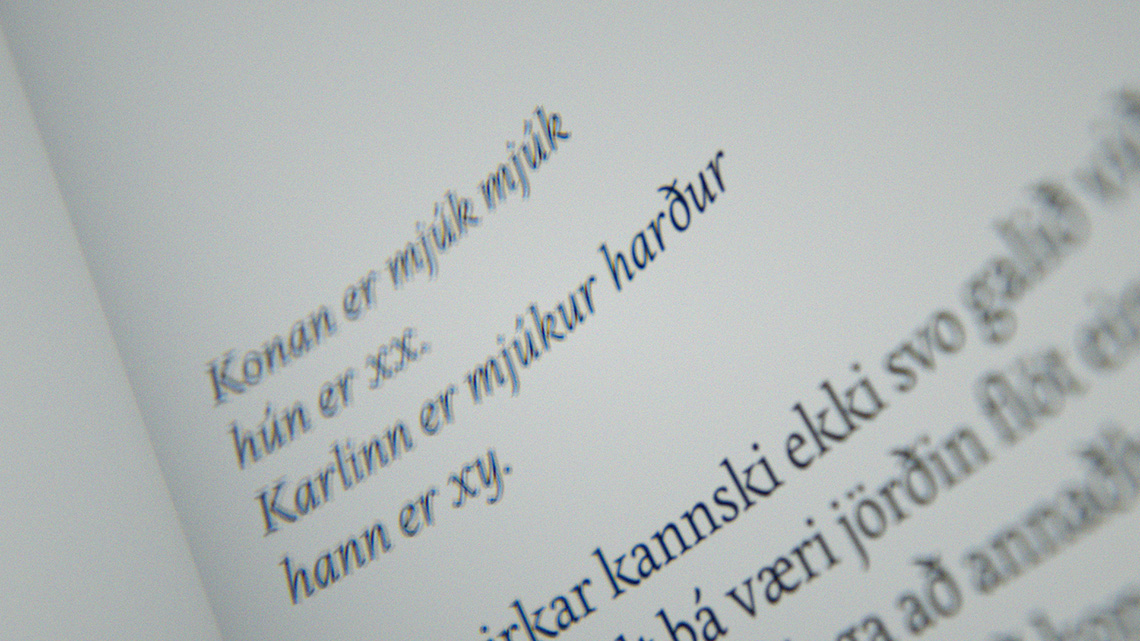 Konan er mjúk mjúk
hún er xx.
Karlinn er mjúkur harður
hann er xy.
kannski ekki svo galið
þá væri jörðin flöt
að